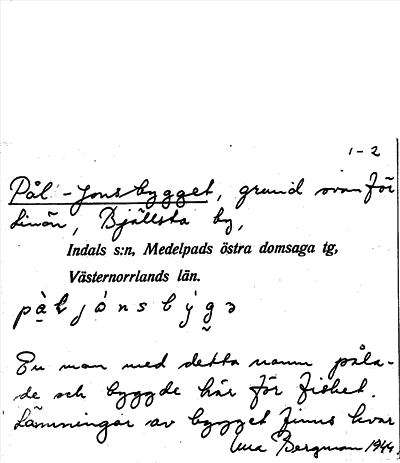 1-2
Pål-Jonsbygget, grund ovanför
Linön, Bjällsta by,
Indals s:n, Medelpads östra domsaga tg,
Västernorrlands län.
En man med detta namn påla-
de och byggde här för fisket.
Lämningar av bygget finns kvar
Bergman 1944